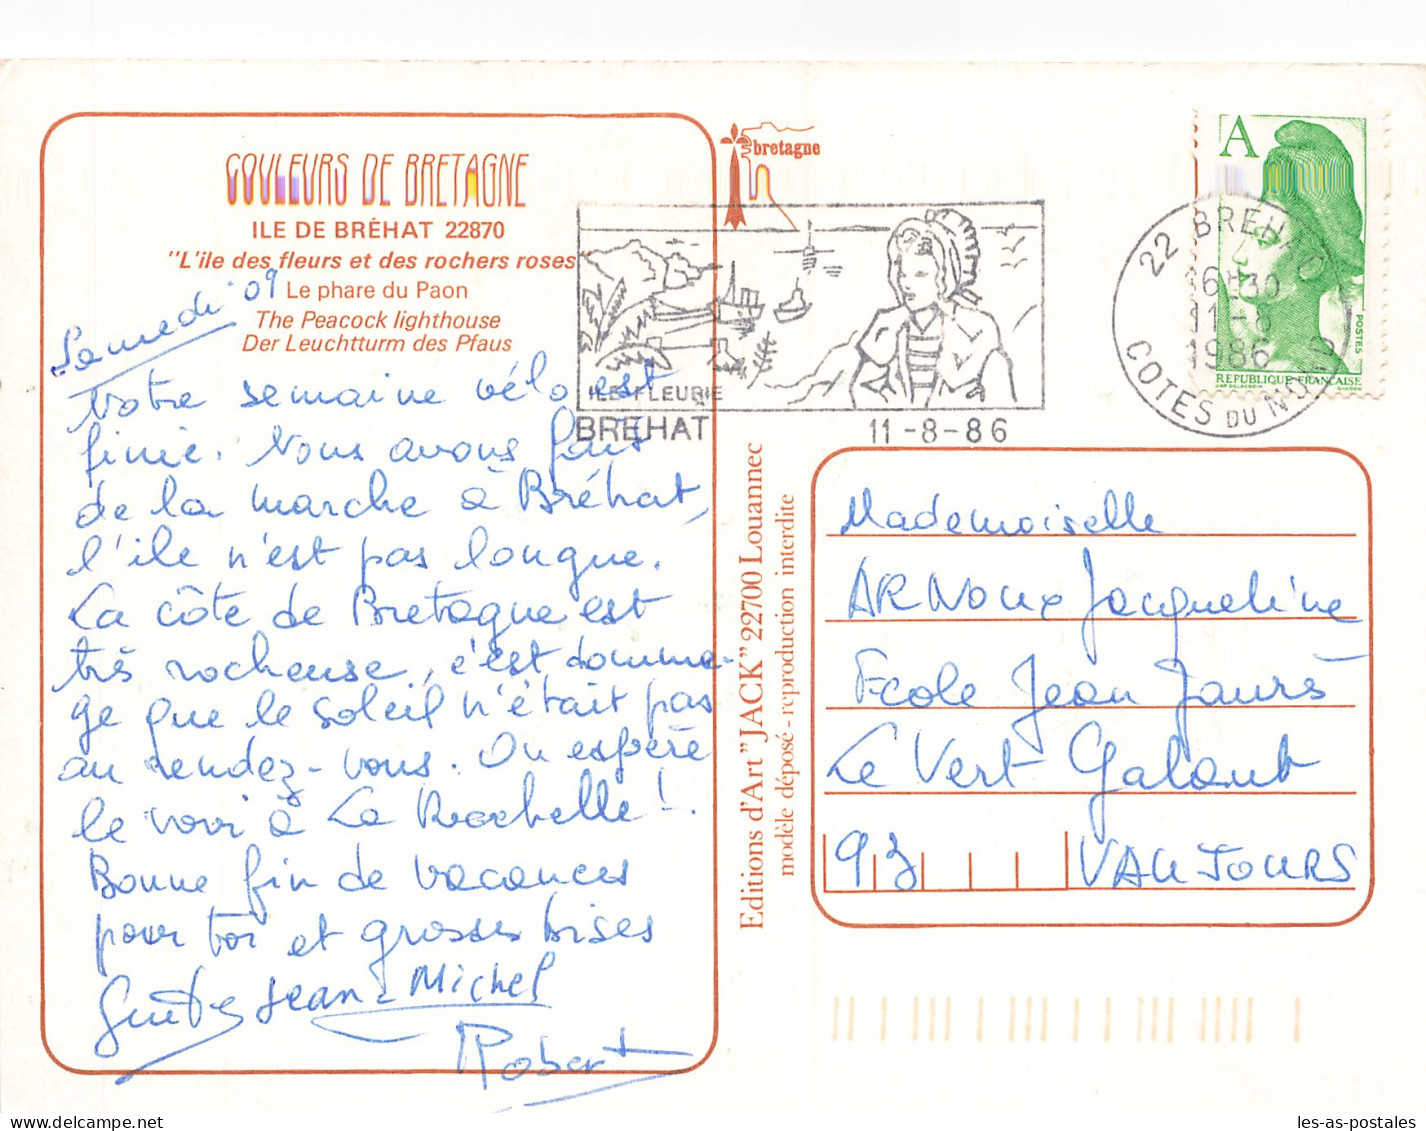 COULEURS DE BRETAGNE
ILE DE BRÉHAT 22870
"L'ile des fleurs et des rochers roses
Le phare du Paon
The Peacock lighthouse
Der Leuchtturm des Pfaus
Samedi 09
Notre semaine vélo est
finie. Nous avons fait
de la marche à Bréhat,
l'ile n'est pas longue.
La côte de Bretagne est
très rocheuse, c'est domma-
ge que le soleil n'était pas
au rendez-vous. On espère
le voir à La Rochelle !.
Bonne fin de vacances
pour toi et grosses bises
Jean-Michel
Robert
bretagne
ILE FLEURIE
BREHAT
11-8-86
22 BREHAT
16H30
11-8
1986
COTES DU NORD
A
POSTES
REPUBLIQUE FRANÇAISE
Editions d'Art "JACK" 22700 Louannec
modèle déposé - reproduction interdite
Mademoiselle
ARNOUX Jacqueline
Ecole Jean Jaurès
Le Vert Galant
93 VAUJOURS
les-as-postales.com